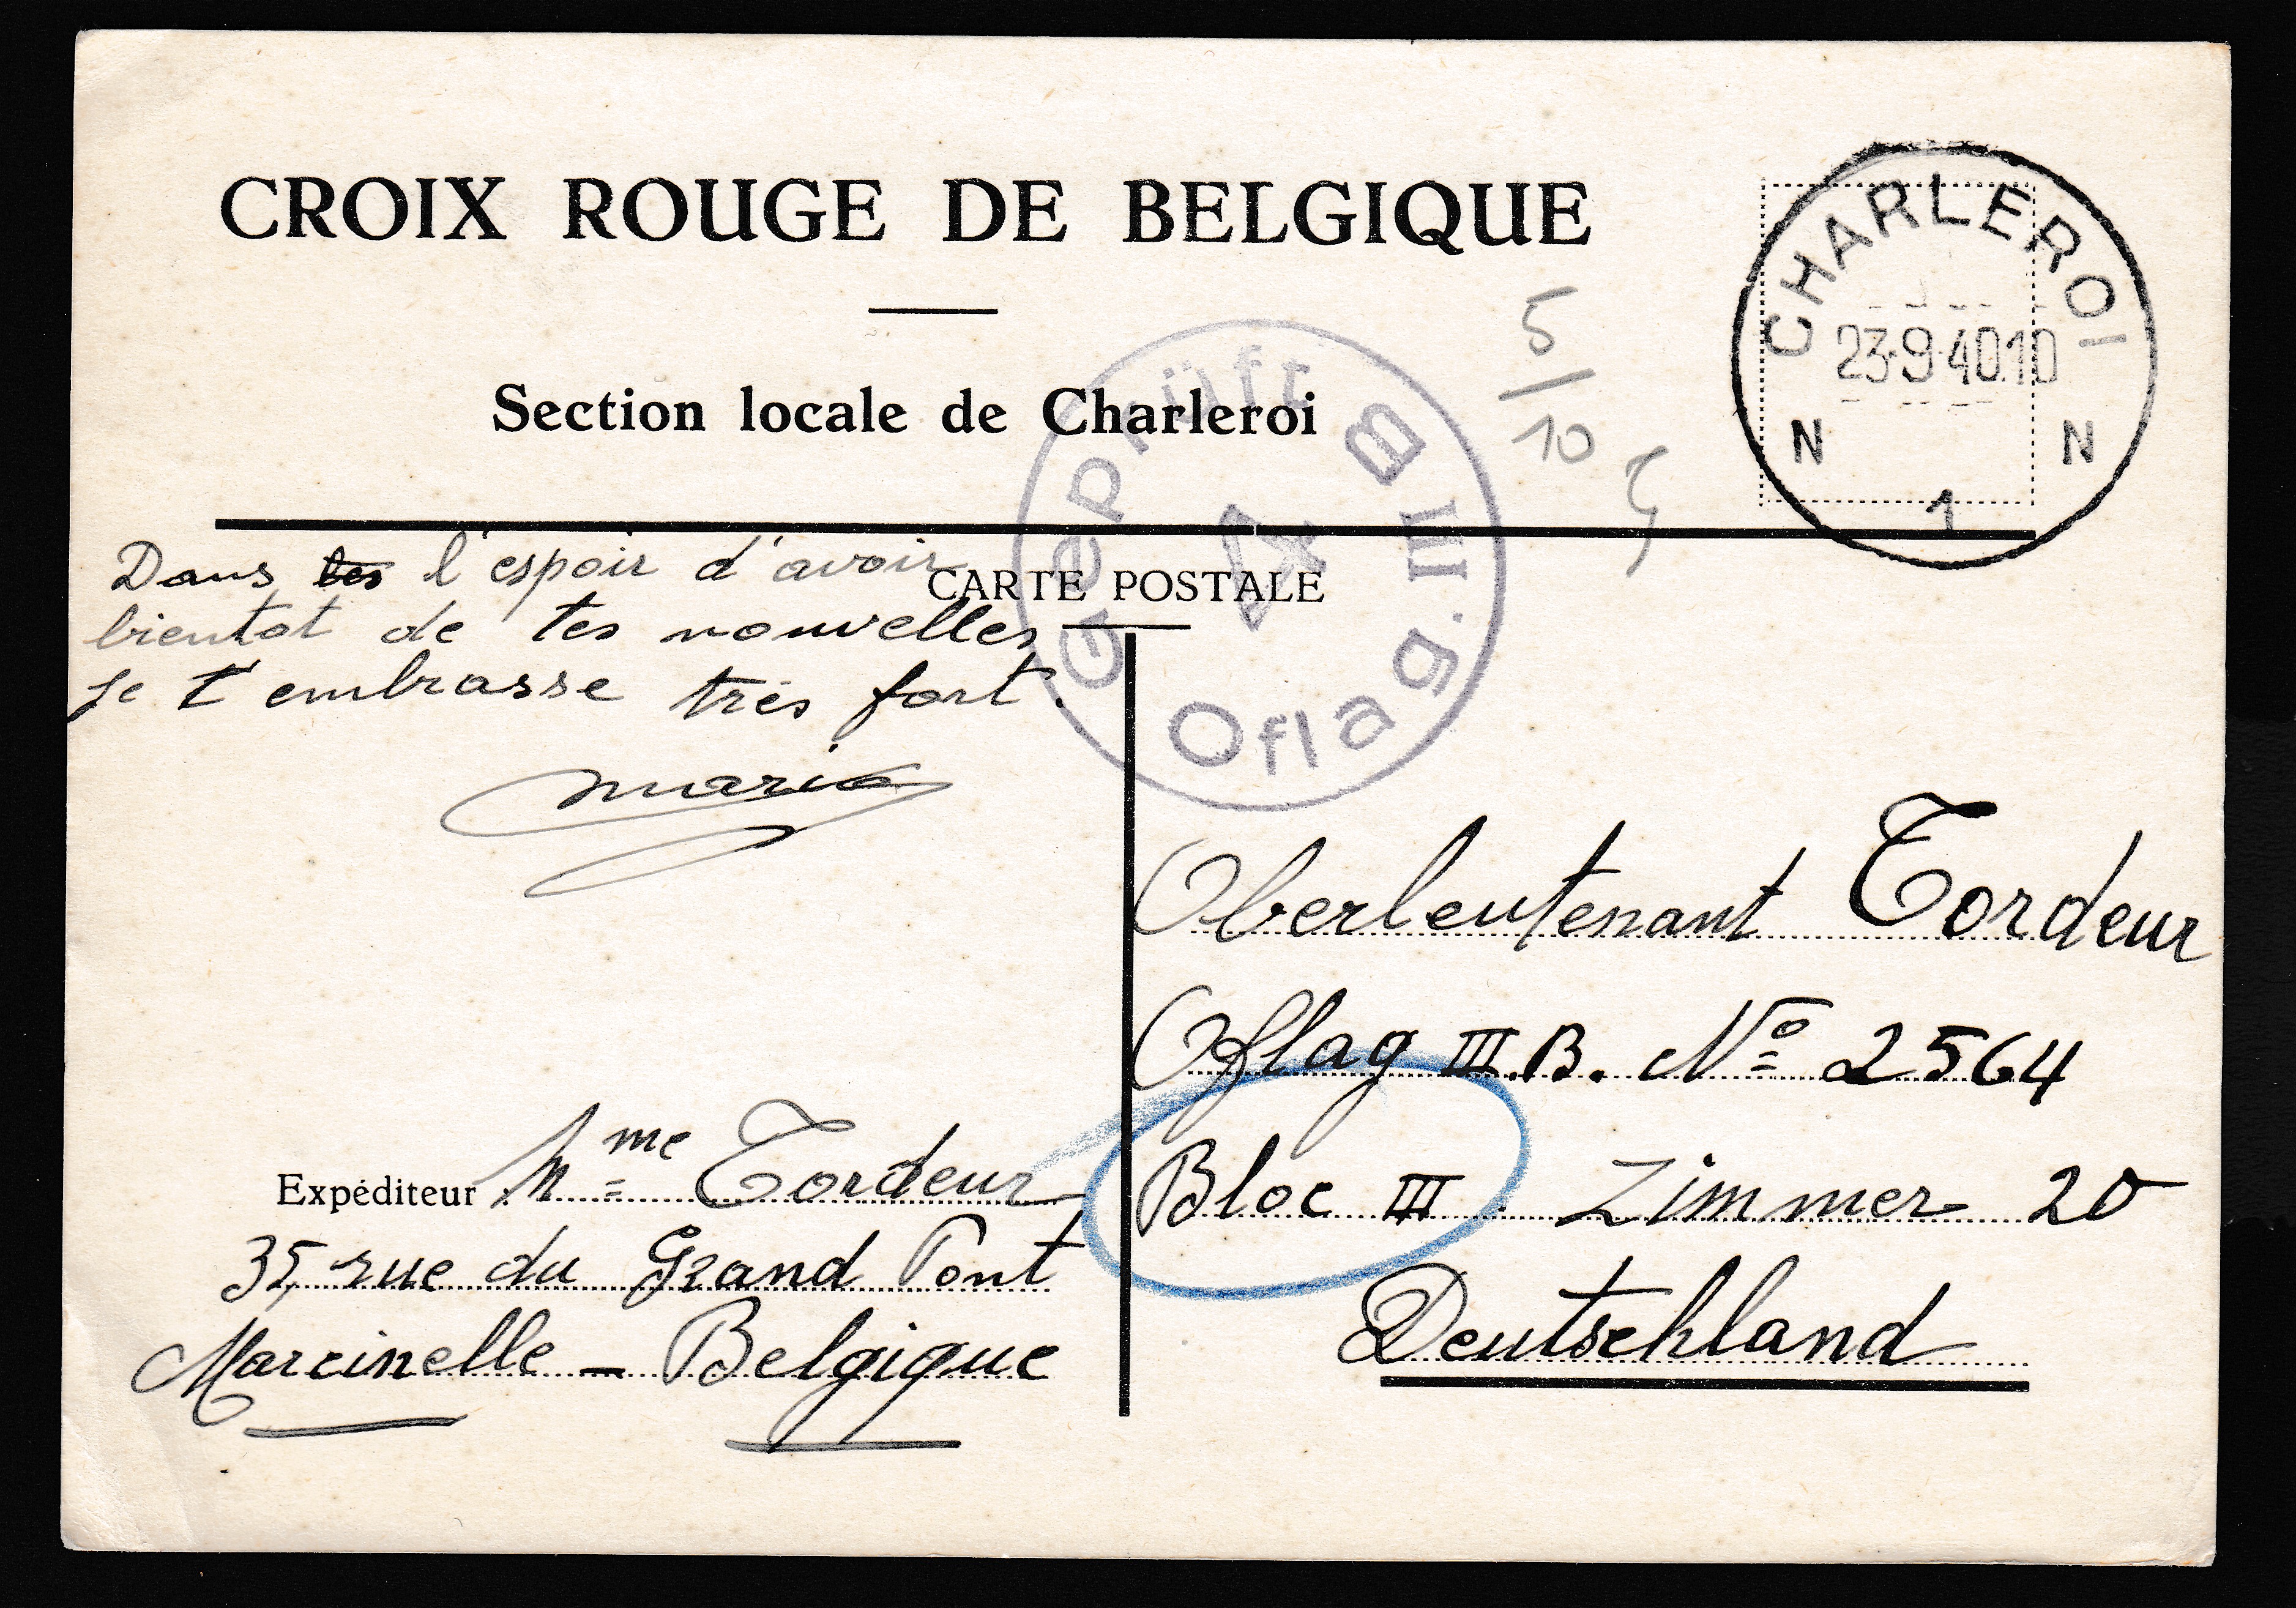 CROIX ROUGE DE BELGIQUE
Section locale de Charleroi
CHARLEROI
23-9-40.10
N N
1
5/10
Geprüft
4
Oflag. III B
CARTE POSTALE
Dans les l'espoir d'avoir
bientot de tes nouvelles
je t'embrasse très fort.
Maria
Oberleutenant Tordeur
Oflag III.B. No 2564
Bloc III Zimmer 20
Deutschland
Expéditeur : Mme Tordeur
35, rue du Grand Pont
Marcinelle - Belgique